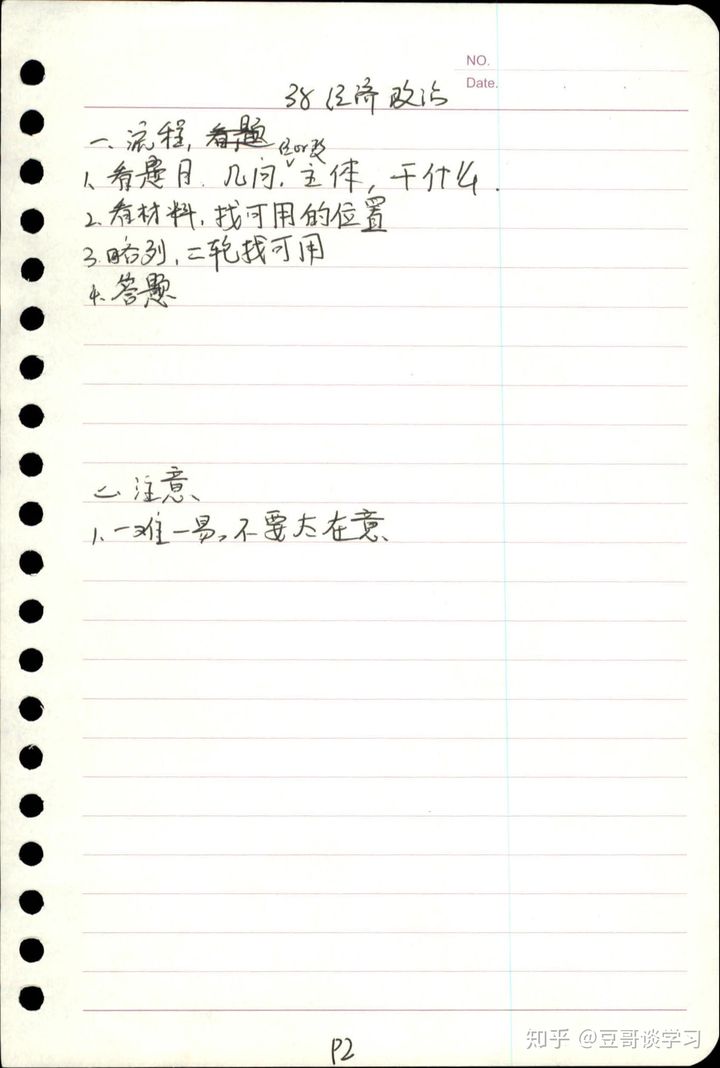 NO.
Date.
38 经济政治
一、流程,看题
经or政
1、看题目、几问,主体,干什么.
2、看材料,找可用的位置
3、略列,二轮找可用
4、答题
二、注意、
1、一难一易。不要太在意、
P2
知乎 @豆哥谈学习